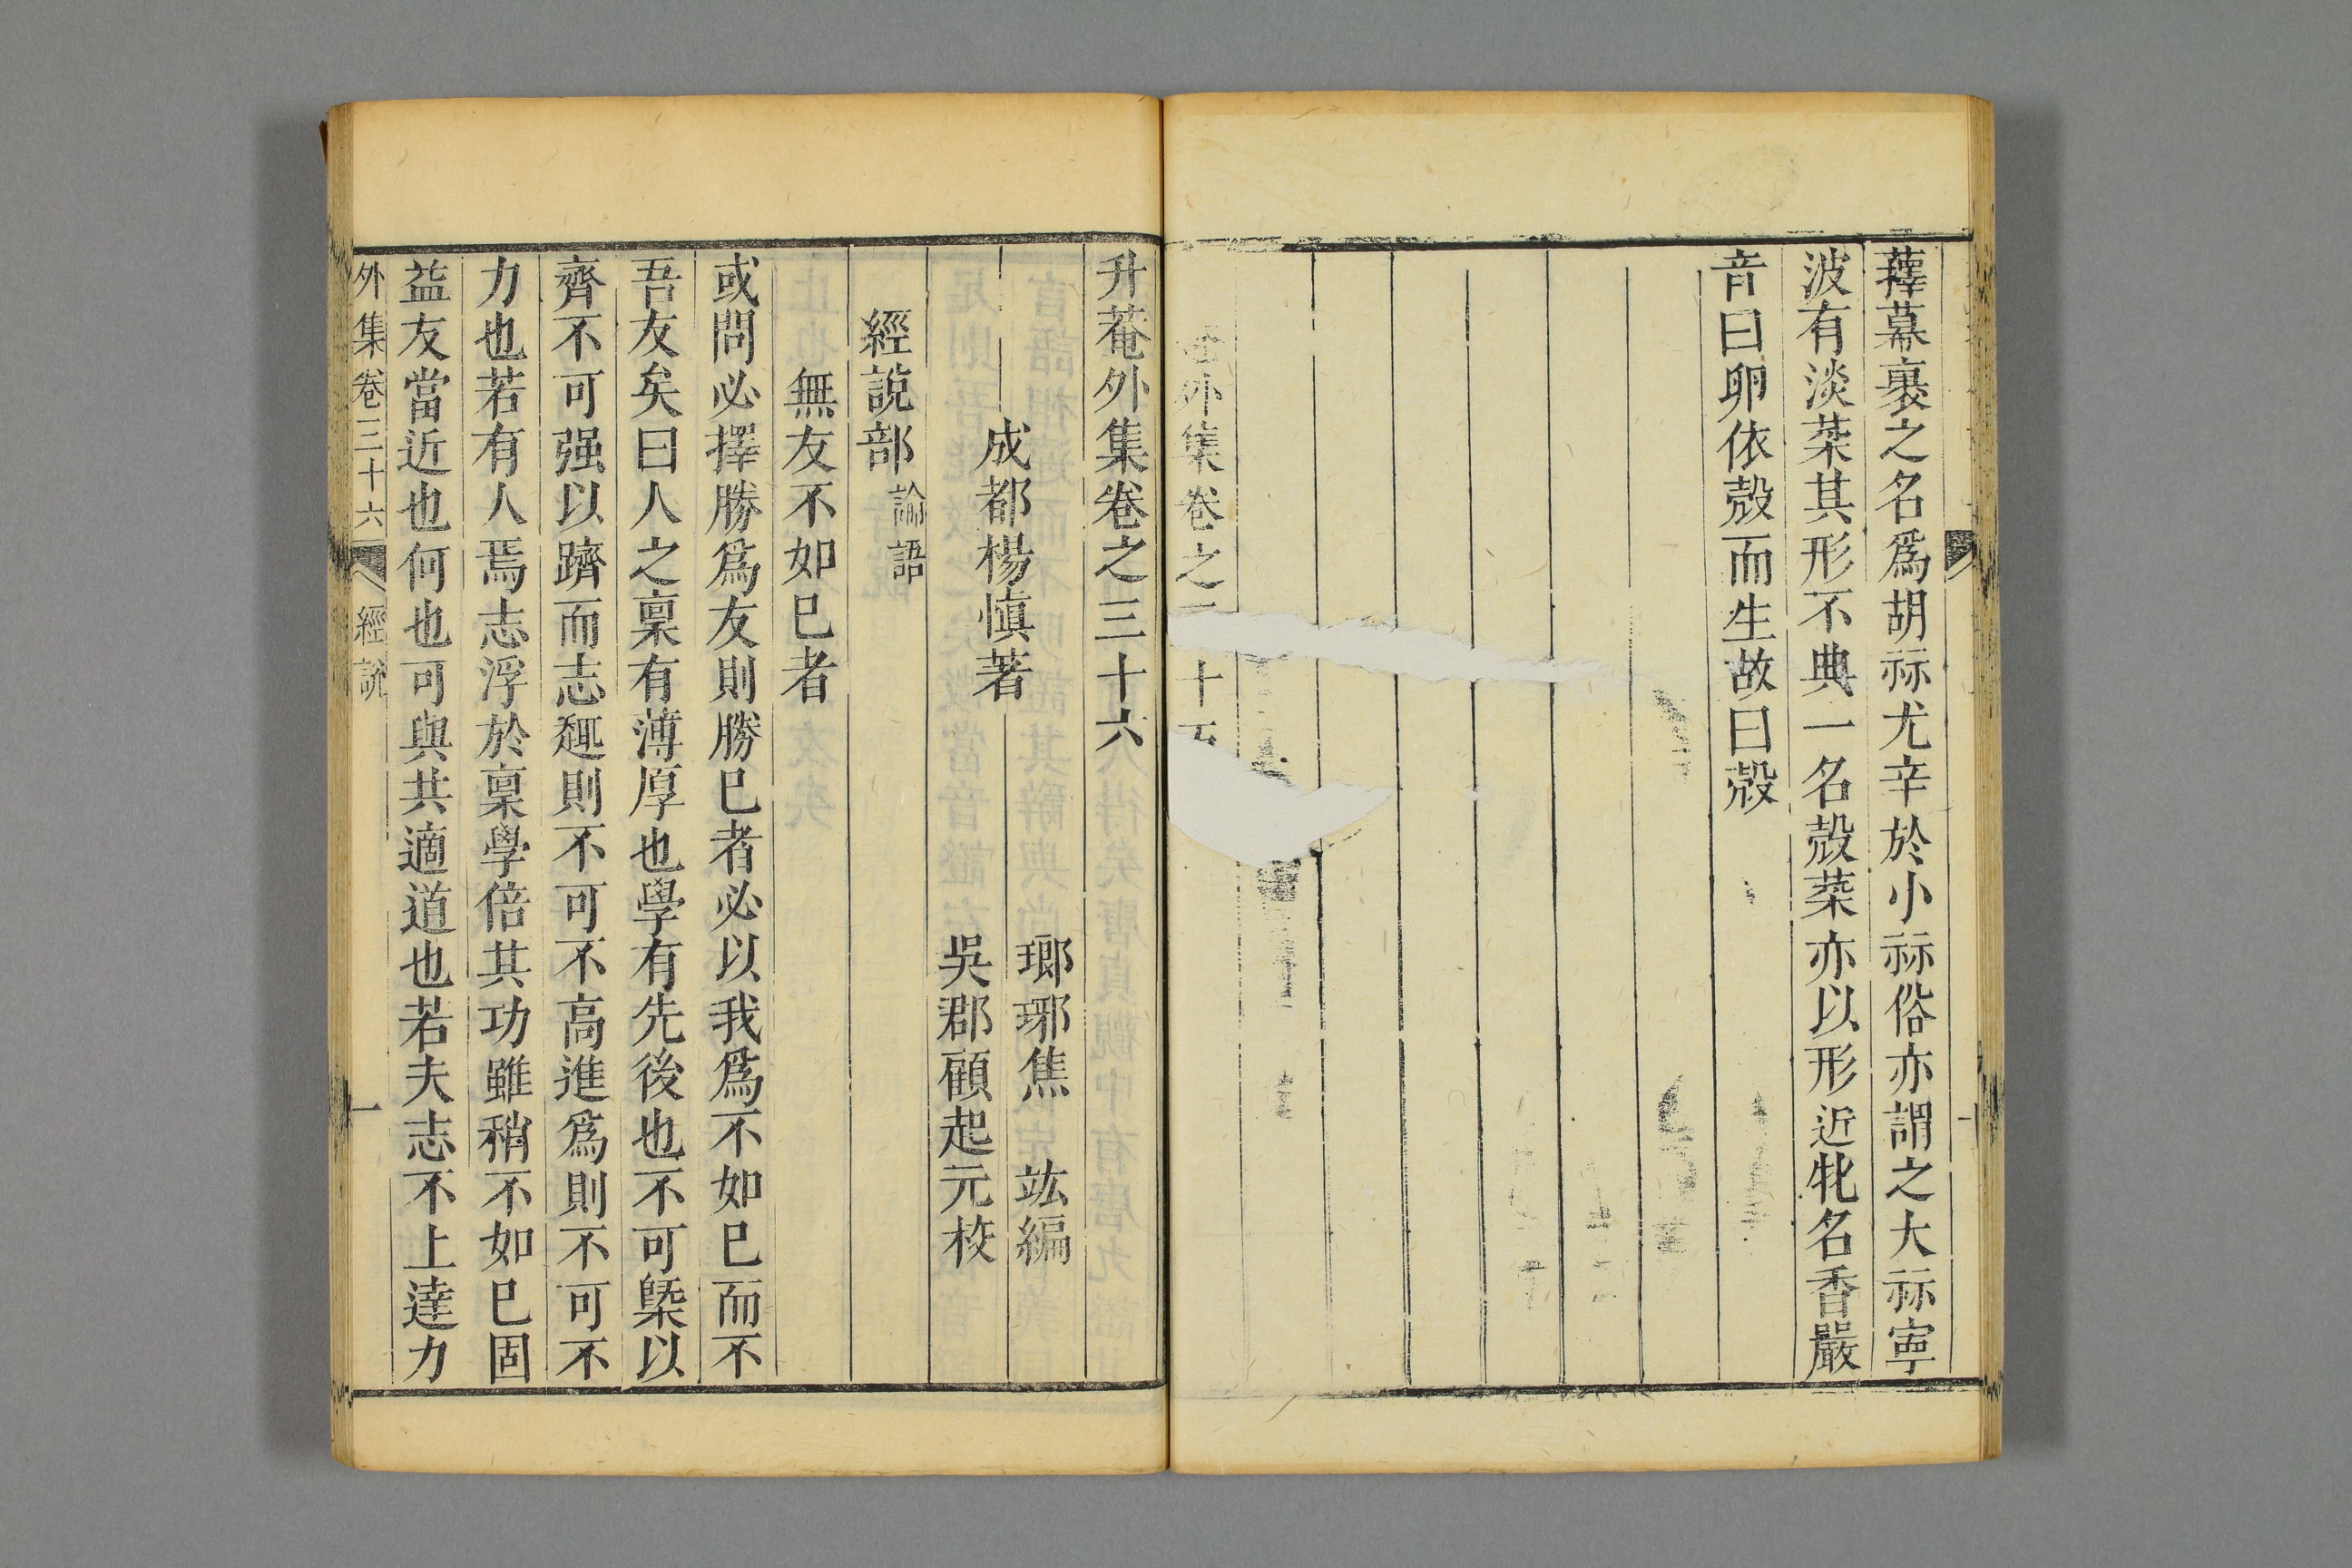 蕐幕裹之名爲胡祘尤辛於小祘俗亦謂之大祘寧
波有淡菜其形不典一名殻菜亦以形近牝名香嚴
音曰卵依殻而生故曰殻
外集卷之
十五
升菴外集卷之三十六
成都楊慎著
瑯琊焦竑編
吳郡顧起元校
經說部論語
無友不如巳者
或問必擇勝爲友則勝巳者必以我爲不如巳而不
吾友矣曰人之稟有薄厚也學有先後也不可槩以
齊不可强以躋而志䞓則不可不高進爲則不可不
力也若有人焉志浮於稟學倍其功雖稍不如巳固
益友當近也何也可與共適道也若夫志不上達力
外集卷三十六 經說 一